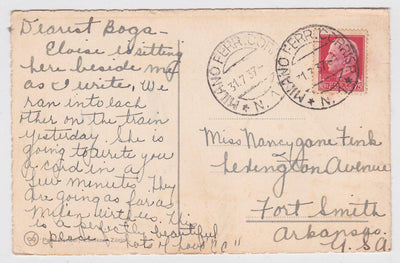 Dearest Boga-
Eloise is sitting
here beside me
as I write, We
ran into each
other on the train
yesterday. She is
going to write you
a card in a
few minutes. They
are going as far as
Milan with us. This
is a perfectly beautiful
place. Lots of love "C"
MILANO FERR. CORRISP.
31.7.37-
N. V.
MILANO FERR. CORRISP.
7.37-
N. V.
Miss Nancygane Fink
Lexington Avenue
Fort Smith
Arkansas.
U.S.A.